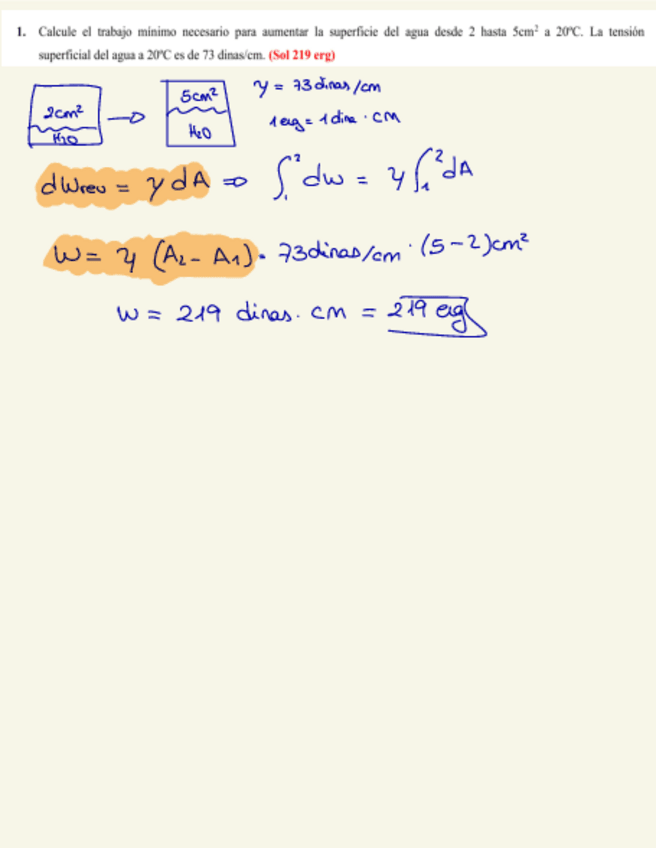 1. Calcule el trabajo mínimo necesario para aumentar la superficie del agua desde 2 hasta 5cm² a 20ºC. La tensión
superficial del agua a 20ºC es de 73 dinas/cm. (Sol 219 erg)
2cm² → 5cm² γ = 73 dinas/cm
H₂O H₂O 1 erg = 1 dina · cm
dWrev = γ dA ⇒ ∫₁² dw = γ ∫₁² dA
W = γ (A₂ - A₁) = 73 dinas/cm · (5-2) cm²
W = 219 dinas · cm = 219 erg